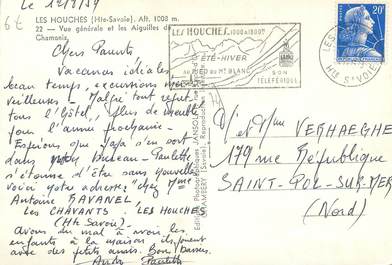 Le 12/8/59
6€
LES HOUCHES (Hte-Savoie). Alt. 1008 m.
22 — Vue générale et les Aiguilles de
Chamonix.
Chers Parents
Vacances idéales
beau temps, excursions mer-
veilleuses - Malgré tout refut
tous l'hôtel, plus de meublé
pour l'année prochaine -
Espérons que ça s'en
dans bureau - Paulette
s'étonne d'être sans nouvelles
voici notre adresse: "chez Mme
Antoine RAVANEL
LES CHAVANTS - LES HOUCHES
(Hte Savoie)
avons du mal à avoir les
enfants à la maison ils jouent
avec des petits amis. Bons baisers
André Paulette
LES HOUCHES 1000 A 1800m
ÉTÉ-HIVER
AU PIED DU MT BLANC
SON
TÉLÉFÉRIQUE
LES
HTE SAVOIE
20F
Mr et Mme VERHAEGHE
179 rue République
SAINT-POL-SUR-MER
(Nord)